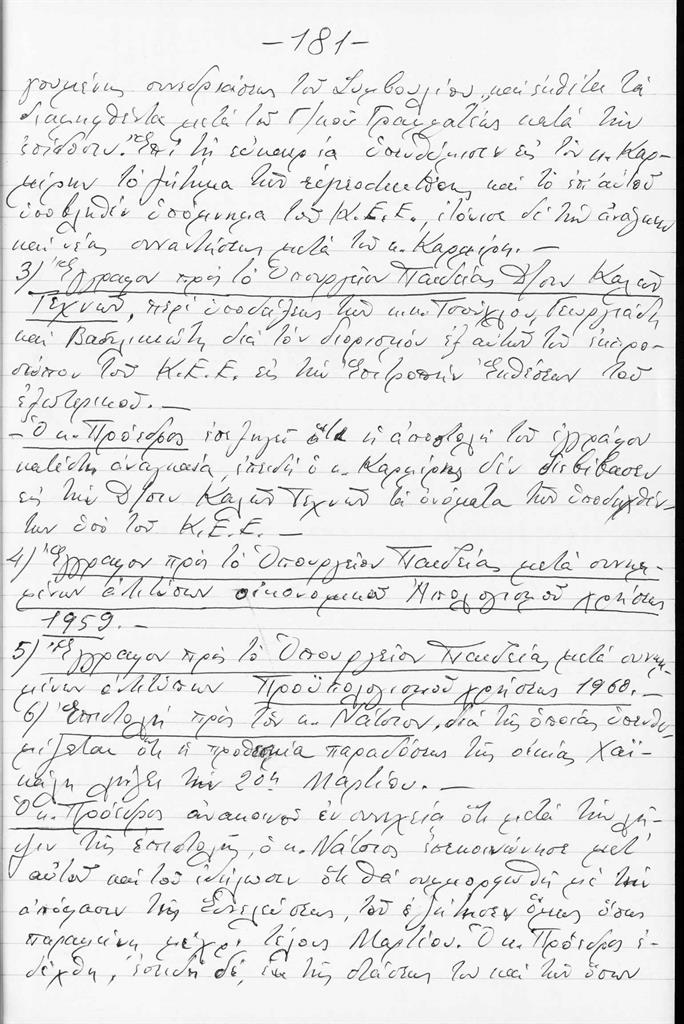 -181-
γουμένης συνεδριάσεως τοῦ Συμβουλίου, καί ἐκθέτει τά
διαμειφθέντα μετά τοῦ Γ/κοῦ Γραμματέως κατά τήν
ἐπίδοσιν. Ἐπί τῇ εὐκαιρίᾳ ὑπενθύμισεν εἰς τόν κ. Καρ-
μίρην τό ζήτημα τῶν καί τό ἐπ' αὐτοῦ
ὑποβληθέν ὑπόμνημα τοῦ Κ.Ε.Ε., ἐτόνισε δέ τήν ἀνάγκην
καί νέας συναντήσεως μετά τοῦ κ. Καρμίρη.—
3) Ἔγγραφον πρός τό Ὑπουργεῖον Παιδείας Δ/σιν Καλῶν
Τεχνῶν, περί ὑποδείξεως τῶν κ.κ. Τσούχλου, Γεωργιάδη
καί Βασιλικιώτη διά τόν διορισμόν ἐξ αὐτῶν τοῦ ἐκπρο-
σώπου τοῦ Κ.Ε.Ε. εἰς τήν Ἐπιτροπήν Ἐκθέσεων τοῦ
ἐξωτερικοῦ.—
- Ὁ κ. Πρόεδρος ἐπεξηγεῖ ὅτι ἡ ἀποστολή τοῦ ἐγγράφου
κατέστη ἀναγκαία, ἐπειδή ὁ κ. Καρμίρης δέν διεβίβασεν
εἰς τήν Δ/σιν Καλῶν Τεχνῶν τά ὀνόματα τῶν ὑποδειχθέν-
των ὑπό τοῦ Κ.Ε.Ε.—
4) Ἔγγραφον πρός τό Ὑπουργεῖον Παιδείας μετά συνημ-
μένων ἐντύπων οἰκονομικοῦ Ἀπολογισμοῦ χρήσεως
1959.—
5) Ἔγγραφον πρός τό Ὑπουργεῖον Παιδείας μετά συνημ-
μένων ἐντύπων Προϋπολογισμοῦ χρήσεως 1960.—
6) Ἐπιστολή πρός τόν κ. Νάτσιον, διά τῆς ὁποίας ὑπενθυ-
μίζεται ὅτι ἡ προθεσμία παραδόσεως τῆς οἰκίας Χαϊ-
κάλη λήγει τήν 20ήν Μαρτίου.—
Ὁ κ. Πρόεδρος ἀνακοινοῖ ἐν συνεχείᾳ ὅτι μετά τήν λῆ-
ψιν τῆς ἐπιστολῆς, ὁ κ. Νάτσιος ἐπεκοινώνησε μετ'
αὐτοῦ καί τοῦ ἐδήλωσεν ὅτι θά συμμορφωθῇ μέ τήν
ἀπόφασιν τῆς Συνελεύσεως, τοῦ ἐζήτησεν ὅμως ὅπως
παραμείνῃ μέχρι τέλους Μαρτίου. Ὁ κ. Πρόεδρος ἐ-
δέχθη, ἐπειδή δέ, ἐκ τῆς στάσεώς του καί τῶν ὅσων